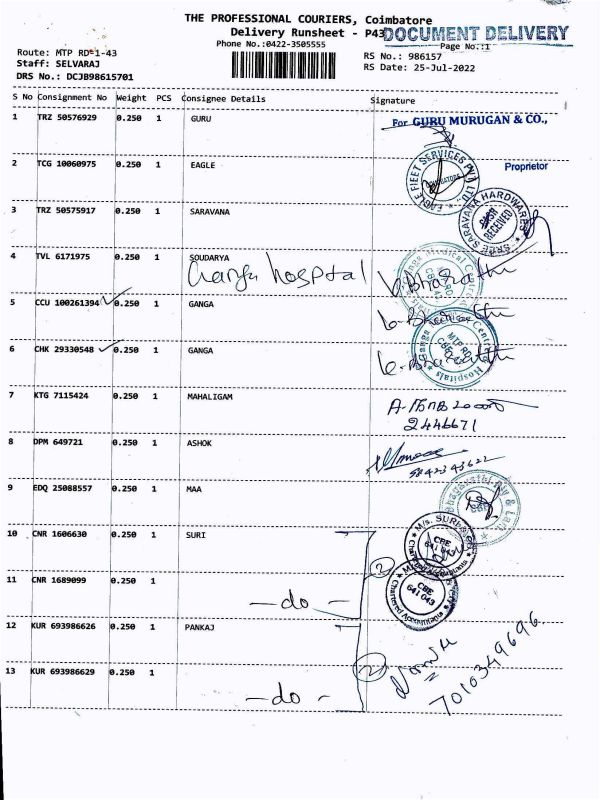 THE PROFESSIONAL COURIERS, Coimbatore
Delivery Runsheet - P43
DOCUMENT DELIVERY
Phone No.:0422-3505555
Page No.:1
Route: MTP RD-1-43
RS No.: 986157
Staff: SELVARAJ
RS Date: 25-Jul-2022
DRS No.: DCJB98615701
S No Consignment No Weight PCS Consignee Details Signature
1 TRZ 50576929 0.250 1 GURU
For GURU MURUGAN & CO.,
Proprietor
2 TCG 10060975 0.250 1 EAGLE
EAGLE FLEET SERVICES PVT LTD
3 TRZ 50575917 0.250 1 SARAVANA
SREE SARAVANA HARDWARES
RECEIVED
4 TVL 6171975 0.250 1 SOUDARYA
Ganga hospital
Ganga Medical Centre
MTP RD
5 CCU 100261394 0.250 1 GANGA
6 CHK 29330548 0.250 1 GANGA
Ganga Medical Centre & Hospitals
MTP RD
7 KTG 7115424 0.250 1 MAHALIGAM
2446671
8 DPM 649721 0.250 1 ASHOK
9 EDQ 25088557 0.250 1 MAA
10 CNR 1606630 0.250 1 SURI
M/s. SURI & CO
CBE
641 043
Chartered Accountants
2
11 CNR 1689099 0.250 1
- do -
CBE
641 043
Chartered Accountants
12 KUR 693986626 0.250 1 PANKAJ
2
7010349696
13 KUR 693986629 0.250 1
- do -